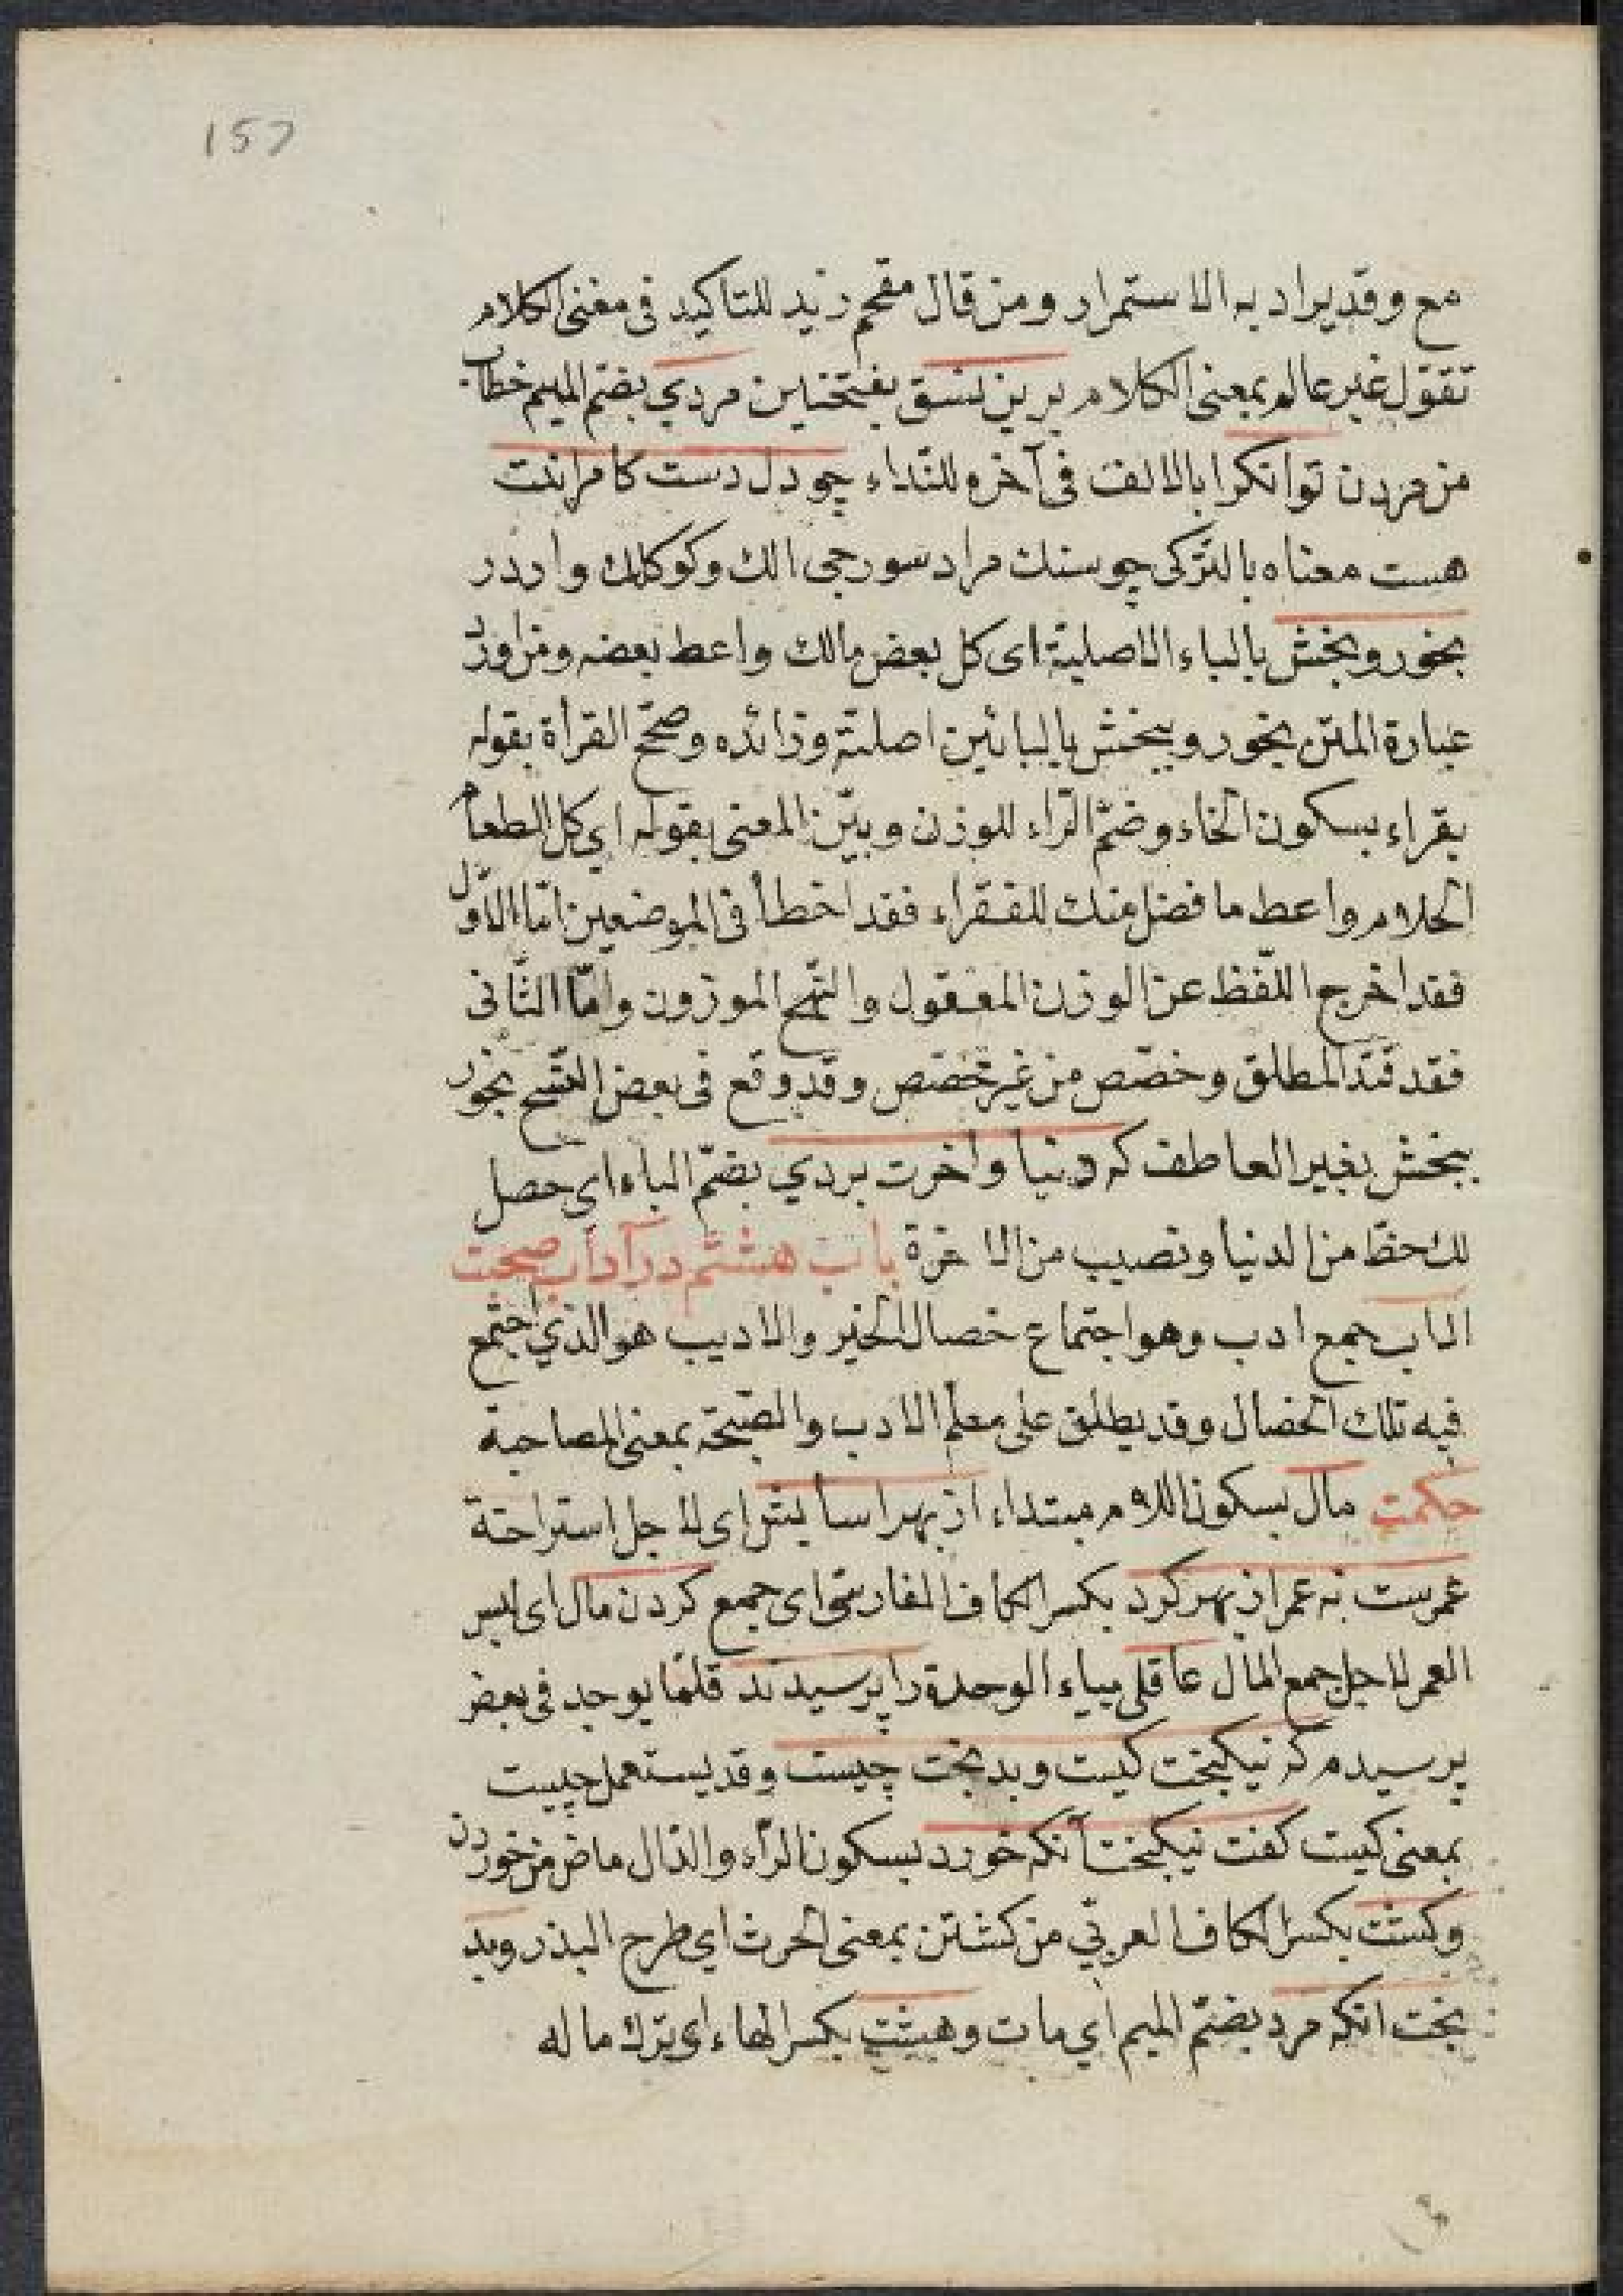 157
مع وقد يراد به الاستمرار ومن قال مقحم زيد للتاكيد فى معنى الكلام
تقول غير عالم بمعنى الكلام برين نسق بفتحتين مردي بضم الميم خطاب
من مردن توانكرا بالالف فى آخره للنداء چو دل دست كامرانت
هست معناه بالتركى چو سنك مراد سورجى الك وكوكلك واردر
بخور وبخش بالباء الاصلية اى كل بعض مالك واعط بعضه ومن اورد
عبارة المتن بخور وببخش بالبائين اصلية وزائده وصحّح القرأة بقوله
يقراء بسكون الخاء وضمّ الرّاء للوزن وبيّن المعنى بقوله اي كل الطعام
الحلام واعط ما فضل منك للفقراء فقد اخطأ فى الموضعين امّا الاوّل
فقد اخرج اللّفظ عن الوزن المعقول والنهج الموزون وامّا الثّانى
فقد قيّد المطلق وخصّص من غير مخصّص وقد وقع فى بعض النّسخ بخور
ببخش بغير العاطف كه دنيا واخرت بردي بضمّ الباء اى حصل
لك حظّ من الدنيا ونصيب من الاخرة باب هشتم در آداب صحبت
الداب جمع ادب وهو اجتماع خصال الخير والاديب هو الذي اجتمع
فيه تلك الخصال وقد يطلق على معلم الادب والصّحبة بمعنى المصاحبة
حكمت مال بسكون اللام مبتداء از بهر اسايش اى لاجل استراحة
عمرست نه عمر از بهر كرد بكسر الكاف الفارسى اى جمع كردن مال اى ليس
العمر لاجل جمع المال عاقلى بياء الوحدة را پرسيدند قلّما يوجد فى بعض
پرسيدم كه نيكبخت كيست وبدبخت چيست وقد يستعمل چيست
بمعنى كيست كفت نيكبخت آنكه خورد بسكون الرّاء والدّال ماض من خوردن
وكشت بكسر الكاف العربي من كشتن بمعنى الحرث اي طرح البذر وبد
بخت انكه مرد بضمّ الميم اي مات وهشت بكسر الهاء اى ترك ماله